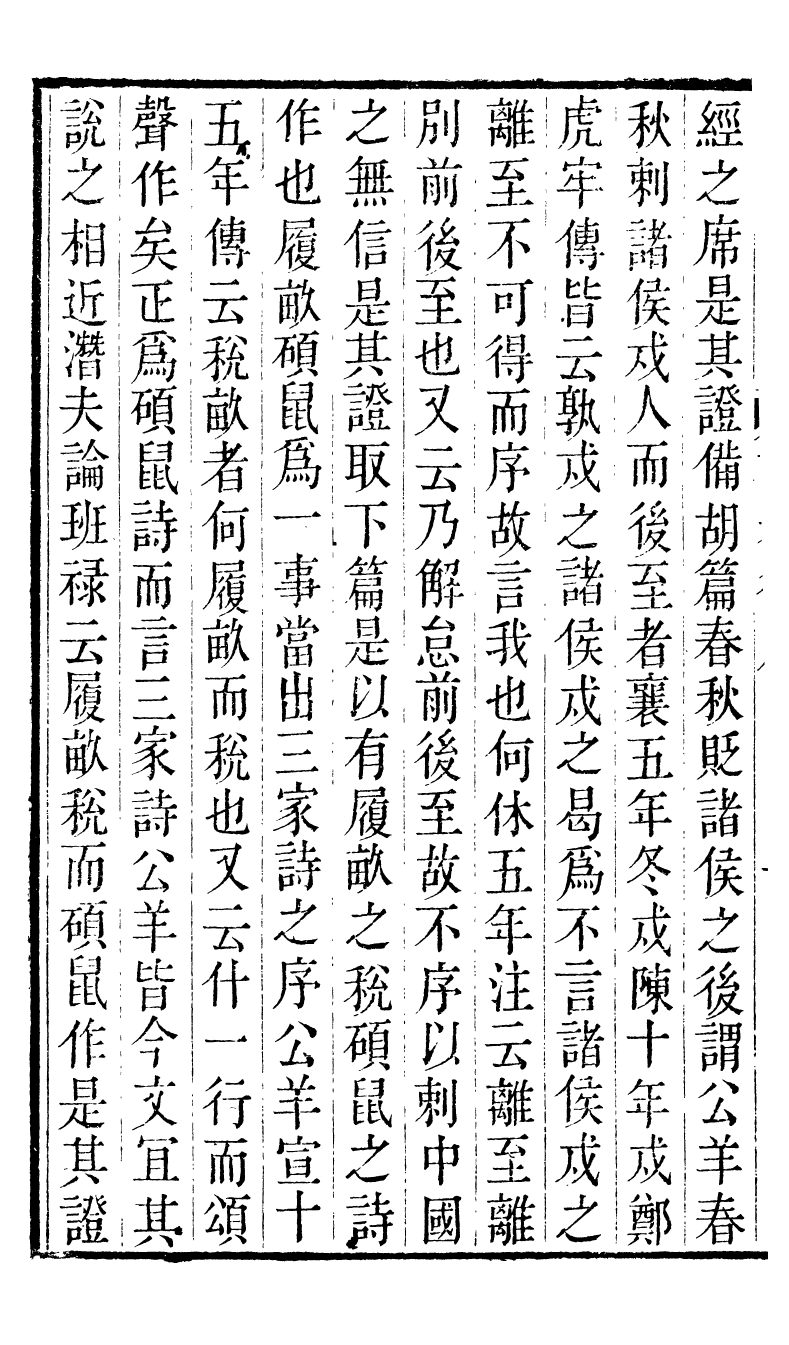 經之席是其證備胡篇春秋貶諸侯之後謂公羊春
秋刺諸侯戍人而後至者襄五年冬戍陳十年戍鄭
虎牢傳皆云孰戍之諸侯戍之曷爲不言諸侯戍之
離至不可得而序故言我也何休五年注云離至離
別前後至也又云乃解怠前後至故不序以刺中國
之無信是其證取下篇是以有履畝之稅碩鼠之詩
作也履畝碩鼠爲一事當出三家詩之序公羊宣十
五年傳云稅畝者何履畝而稅也又云什一行而頌
聲作矣正爲碩鼠詩而言三家詩公羊皆今文宜其
說之相近潛夫論班祿云履畝稅而碩鼠作是其證